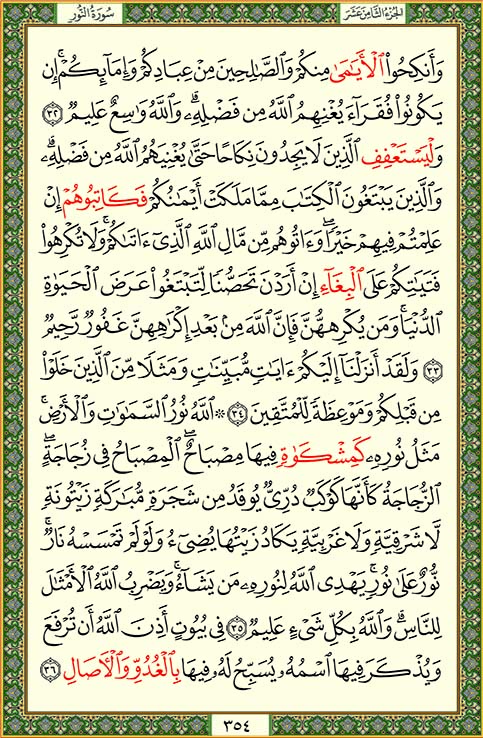 الجزء الثامن عشر
سورة النور
وَأَنكِحُوا۟ ٱلْأَيَـٰمَىٰ مِنكُمْ وَٱلصَّـٰلِحِينَ مِنْ عِبَادِكُمْ وَإِمَآئِكُمْ ۚ إِن
يَكُونُوا۟ فُقَرَآءَ يُغْنِهِمُ ٱللَّهُ مِن فَضْلِهِۦ ۗ وَٱللَّهُ وَٰسِعٌ عَلِيمٌ ٣٢
وَلْيَسْتَعْفِفِ ٱلَّذِينَ لَا يَجِدُونَ نِكَاحًا حَتَّىٰ يُغْنِيَهُمُ ٱللَّهُ مِن فَضْلِهِۦ ۗ
وَٱلَّذِينَ يَبْتَغُونَ ٱلْكِتَـٰبَ مِمَّا مَلَكَتْ أَيْمَـٰنُكُمْ فَكَاتِبُوهُمْ إِنْ
عَلِمْتُمْ فِيهِمْ خَيْرًا ۖ وَءَاتُوهُم مِّن مَّالِ ٱللَّهِ ٱلَّذِىٓ ءَاتَىٰكُمْ ۚ وَلَا تُكْرِهُوا۟
فَتَيَـٰتِكُمْ عَلَى ٱلْبِغَآءِ إِنْ أَرَدْنَ تَحَصُّنًا لِّتَبْتَغُوا۟ عَرَضَ ٱلْحَيَوٰةِ
ٱلدُّنْيَا ۚ وَمَن يُكْرِههُّنَّ فَإِنَّ ٱللَّهَ مِنۢ بَعْدِ إِكْرَٰهِهِنَّ غَفُورٌ رَّحِيمٌ
٣٣ وَلَقَدْ أَنزَلْنَآ إِلَيْكُمْ ءَايَـٰتٍ مُّبَيِّنَـٰتٍ وَمَثَلًا مِّنَ ٱلَّذِينَ خَلَوْا۟
مِن قَبْلِكُمْ وَمَوْعِظَةً لِّلْمُتَّقِينَ ٣٤ ۞ ٱللَّهُ نُورُ ٱلسَّمَـٰوَٰتِ وَٱلْأَرْضِ ۚ
مَثَلُ نُورِهِۦ كَمِشْكَوٰةٍ فِيهَا مِصْبَاحٌ ۖ ٱلْمِصْبَاحُ فِى زُجَاجَةٍ ۖ
ٱلزُّجَاجَةُ كَأَنَّهَا كَوْكَبٌ دُرِّىٌّ يُوقَدُ مِن شَجَرَةٍ مُّبَـٰرَكَةٍ زَيْتُونَةٍ
لَّا شَرْقِيَّةٍ وَلَا غَرْبِيَّةٍ يَكَادُ زَيْتُهَا يُضِىٓءُ وَلَوْ لَمْ تَمْسَسْهُ نَارٌ ۚ
نُّورٌ عَلَىٰ نُورٍ ۗ يَهْدِى ٱللَّهُ لِنُورِهِۦ مَن يَشَآءُ ۚ وَيَضْرِبُ ٱللَّهُ ٱلْأَمْثَـٰلَ
لِلنَّاسِ ۗ وَٱللَّهُ بِكُلِّ شَىْءٍ عَلِيمٌ ٣٥ فِى بُيُوتٍ أَذِنَ ٱللَّهُ أَن تُرْفَعَ
وَيُذْكَرَ فِيهَا ٱسْمُهُۥ يُسَبِّحُ لَهُۥ فِيهَا بِٱلْغُدُوِّ وَٱلْـَٔاصَالِ ٣٦
٣٥٤